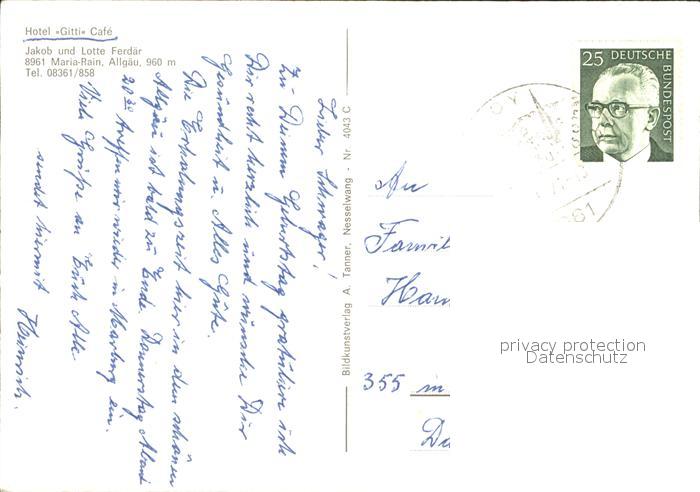 Hotel »Gitti« Café
Jakob und Lotte Ferdär
8961 Maria-Rain, Allgäu, 960 m
Tel. 08361/858
Lieber Schwager!
Zu Deinem Geburtstag gratuliere ich
Dir recht herzlich und wünsche Dir
Gesundheit u. Alles Gute.
Die Erholungszeit hier in dem schönen
Allgäu ist bald zu Ende. Donnerstag Abend
20 30 treffen wir wieder in Marburg ein.
Viele Grüße an Euch Alle
sendet hiermit
Heinrich.
Bildkunstverlag A. Tanner, Nesselwang - Nr. 4043 C
25 DEUTSCHE
BUNDESPOST
OY
An
Famil
Han
355 in
privacy protection
Datenschutz